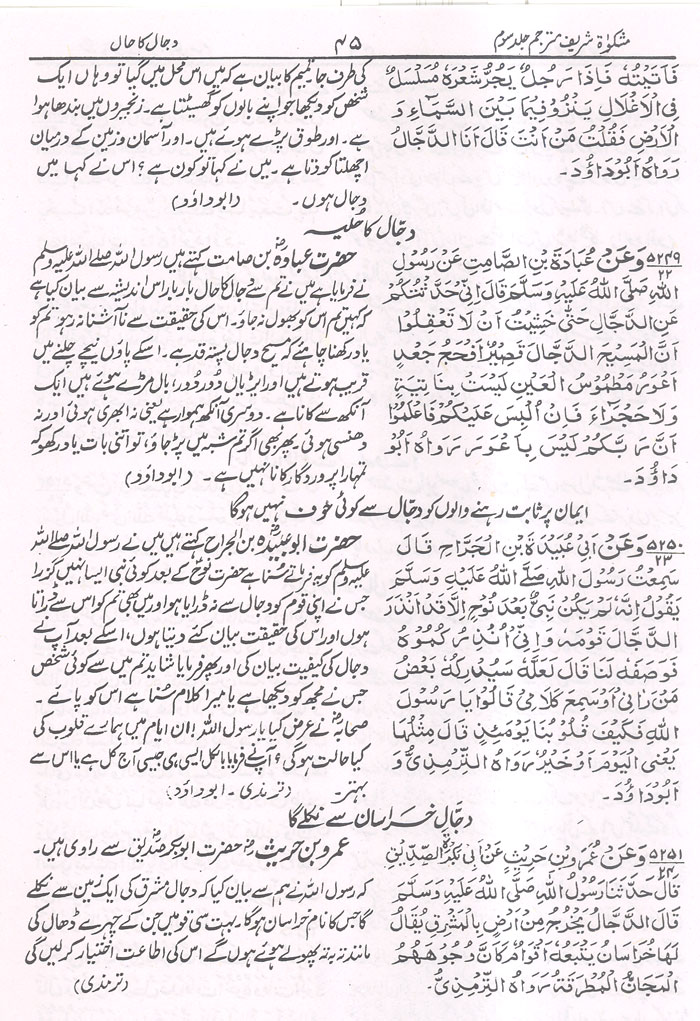 مشکوٰۃ شریف مترجم جلد سوم
۴۵
دجال کا حال
فَأَتَيْتُهُ فَإِذَا رَجُلٌ يَجُرُّ شَعْرَهُ مُسَلْسَلٌ
فِي الْأَغْلَالِ يَنْزُو فِيمَا بَيْنَ السَّمَاءِ وَ
الْأَرْضِ فَقُلْتُ مَنْ أَنْتَ قَالَ أَنَا الدَّجَّالُ
رَوَاهُ أَبُودَاوُدَ۔
کی طرف جا، تمیم کا بیان ہے کہ میں اس محل میں گیا تو وہاں ایک
شخص کو دیکھا جو اپنے بالوں کو گھسیٹتا ہے۔ زنجیروں میں بندھا ہوا
ہے۔ اور طوق پڑے ہوئے ہیں۔ اور آسمان و زمین کے درمیان
اچھلتا کودتا ہے۔ میں نے کہا تو کون ہے؟ اس نے کہا میں
دجال ہوں۔ (ابوداؤد)
دجّال کا حُلیہ
۵۲۴۹ وَعَنْ عُبَادَةَ بْنِ الصَّامِتِ عَنْ رَسُولِ
۲۲
اللهِ صَلَّى اللهُ عَلَيْهِ وَسَلَّمَ قَالَ إِنِّي حَدَّثْتُكُمْ
عَنِ الدَّجَّالِ حَتّٰى خَشِيْتُ أَنْ لَا تَعْقِلُوا
أَنَّ الْمَسِيْحَ الدَّجَّالَ قَصِيْرٌ أَفْحَجُ جَعْدٌ
أَعْوَرُ مَطْمُوْسُ الْعَيْنِ لَيْسَتْ بِنَاتِيَةٍ
وَلَا حَجْرَاءَ فَإِنْ أُلْبِسَ عَلَيْكُمْ فَاعْلَمُوا
أَنَّ رَبَّكُمْ لَيْسَ بِأَعْوَرَ رَوَاهُ أَبُو
دَاوُدَ۔
حضرت عبادہؓ بن صامت کہتے ہیں رسول اللہ صلے اللہ علیہ وسلم
نے فرمایا ہے میں نے تم سے دجال کا حال بار بار اس اندیشہ سے بیان کیا ہے
کہ کہیں تم اس کو بھول نہ جاؤ۔ اس کی حقیقت سے ناآشنا نہ رہو تم کو
یاد رکھنا چاہئے کہ مسیح دجال پستہ قد ہے۔ اسکے پاؤں نیچے چلنے میں
قریب ہوتے ہیں اور ایڑیاں دُور دُور، بال مڑے ہوئے ہیں ایک
آنکھ سے کانا ہے۔ دوسری آنکھ ہموار ہے یعنی نہ ابھری ہوئی اور نہ
دھنسی ہوئی۔ پھر بھی اگر تم شبہ میں پڑ جاؤ، تو اتنی بات یاد رکھو کہ
تمہارا پروردگار کانا نہیں ہے۔ (ابوداؤد)
ایمان پر ثابت رہنے والوں کو دجال سے کوئی خوف نہیں ہوگا
۵۲۵۰ وَعَنْ أَبِي عُبَيْدَةَ بْنِ الْجَرَّاحِ قَالَ
۲۳
سَمِعْتُ رَسُولَ اللهِ صَلَّى اللهُ عَلَيْهِ وَسَلَّمَ
يَقُولُ إِنَّهُ لَمْ يَكُنْ نَبِيٌّ بَعْدَ نُوْحٍ إِلَّا قَدْ أَنْذَرَ
الدَّجَّالَ قَوْمَهُ وَإِنِّي أُنْذِرُكُمُوْهُ
فَوَصَفَهُ لَنَا قَالَ لَعَلَّهُ سَيُدْرِكُهُ بَعْضُ
مَنْ رَاٰنِي أَوْ سَمِعَ كَلَامِي قَالُوا يَا رَسُولَ
اللهِ فَكَيْفَ قُلُوْبُنَا يَوْمَئِذٍ قَالَ مِثْلُهَا
يَعْنِي الْيَوْمَ أَوْ خَيْرٌ رَوَاهُ التِّرْمِذِيُّ وَ
أَبُودَاوُدَ۔
حضرت ابوعبیدہؓ بن الجراح کہتے ہیں میں نے رسول اللہ صلے اللہ
علیہ وسلم کو یہ فرماتے سُنا ہے حضرت نوحؑ کے بعد کوئی نبی ایسا نہیں گزرا
جس نے اپنی قوم کو دجال سے نہ ڈرایا ہو اور میں بھی تم کو اس سے ڈراتا
ہوں اور اس کی حقیقت بیان کئے دیتا ہوں، اسکے بعد آپ نے
دجال کی کیفیت بیان کی اور پھر فرمایا شاید تم میں سے کوئی شخص
جس نے مجھ کو دیکھا ہے یا میرا کلام سُنا ہے اس کو پائے۔
صحابہؓ نے عرض کیا یا رسول اللہ! ان ایام میں ہمارے قلوب کی
کیا حالت ہوگی؟ آپ نے فرمایا بالکل ایسی ہی جیسی آج کل ہے یا اس سے
بہتر۔ (ترمذی۔ ابوداؤد)
دجّال خراسان سے نکلے گا
۵۲۵۱ وَعَنْ عَمْرِو بْنِ حُرَيْثٍ عَنْ أَبِي بَكْرٍ الصِّدِّيْقِ
۲۴
قَالَ حَدَّثَنَا رَسُولُ اللهِ صَلَّى اللهُ عَلَيْهِ وَسَلَّمَ
قَالَ الدَّجَّالُ يَخْرُجُ مِنْ أَرْضٍ بِالْمَشْرِقِ يُقَالُ
لَهَا خُرَاسَانُ يَتْبَعُهُ أَقْوَامٌ كَأَنَّ وُجُوْهَهُمُ
الْمَجَانُّ الْمُطْرَقَةُ رَوَاهُ التِّرْمِذِيُّ۔
عمرو بن حریثؓ، حضرت ابوبکر صدیقؓ سے راوی ہیں۔
کہ رسول اللہ نے ہم سے بیان کیا کہ دجال مشرق کی ایک زمین سے نکلے
گا جس کا نام خراسان ہوگا۔ بہت سی قومیں جن کے چہرے ڈھال کی
مانند تہ بہ تہ پھولے ہوئے ہوں گے اس کی اطاعت اختیار کرلیں گی
(ترمذی)